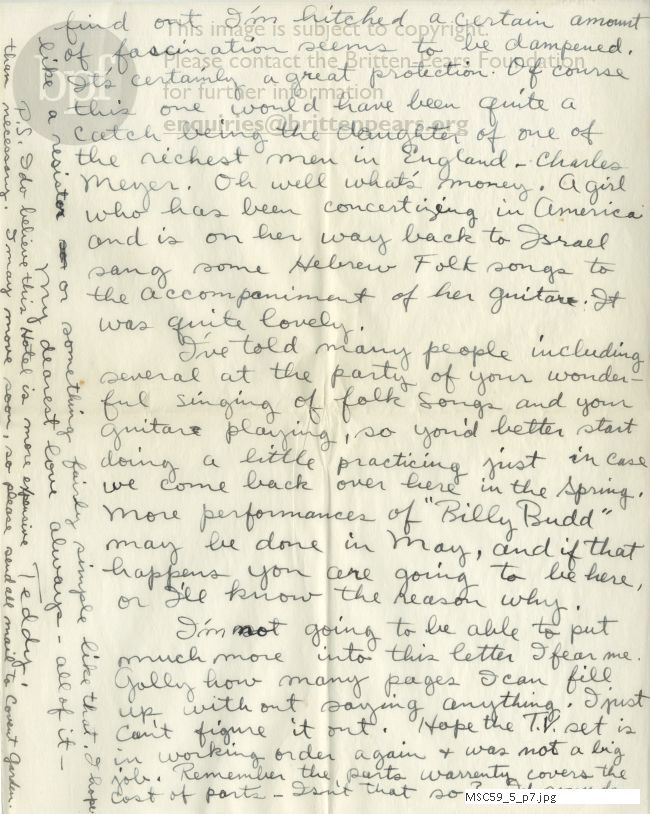 find out I'm hitched a certain amount
of fascination seems to be dampened.
It's certainly a great protection. Of course
this one would have been quite a
catch being the daughter of one of
the richest men in England – Charles
Meyer. Oh well what's money. A girl
who has been concertizing in America
and is on her way back to Israel
sang some Hebrew Folk songs to
the accompaniment of her guitar. It
was quite lovely.
I've told many people including
several at the party of your wonder-
ful singing of folk songs and your
guitar playing, so you'd better start
doing a little practicing just in case
we come back over here in the Spring.
More performances of "Billy Budd"
may be done in May, and if that
happens you are going to be here,
or I'll know the reason why.
I'm not going to be able to put
much more into this letter I fear me.
Golly how many pages I can fill
up without saying anything. I just
can't figure it out. Hope the T.V. set is
in working order again & was not a big
job. Remember the parts warrenty covers the
cost of parts – Isn't that so?
like a resistor or something fairly simple like that. I hope
My dearest love always – all of it –
Teddy.
P.S. I do believe this Hotel is more expensive
than necessary. I may move soon, so please send all mail to Covent Garden.
This image is subject to copyright.
Please contact the Britten-Pears Foundation
for further information
enquiries@brittenpears.org
bpf
MSC59_5_p7.jpg